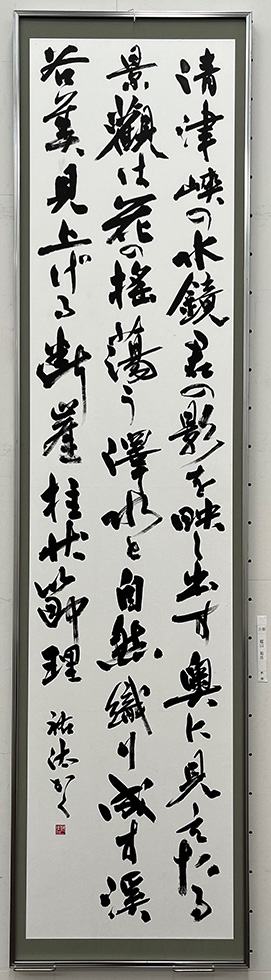 清津峡の水鏡君の影を映し出す奥に見えたる
景観は花の揺蕩う澤水と自然織り成す渓
谷美見上げる断崖柱状節理
祐汰かく